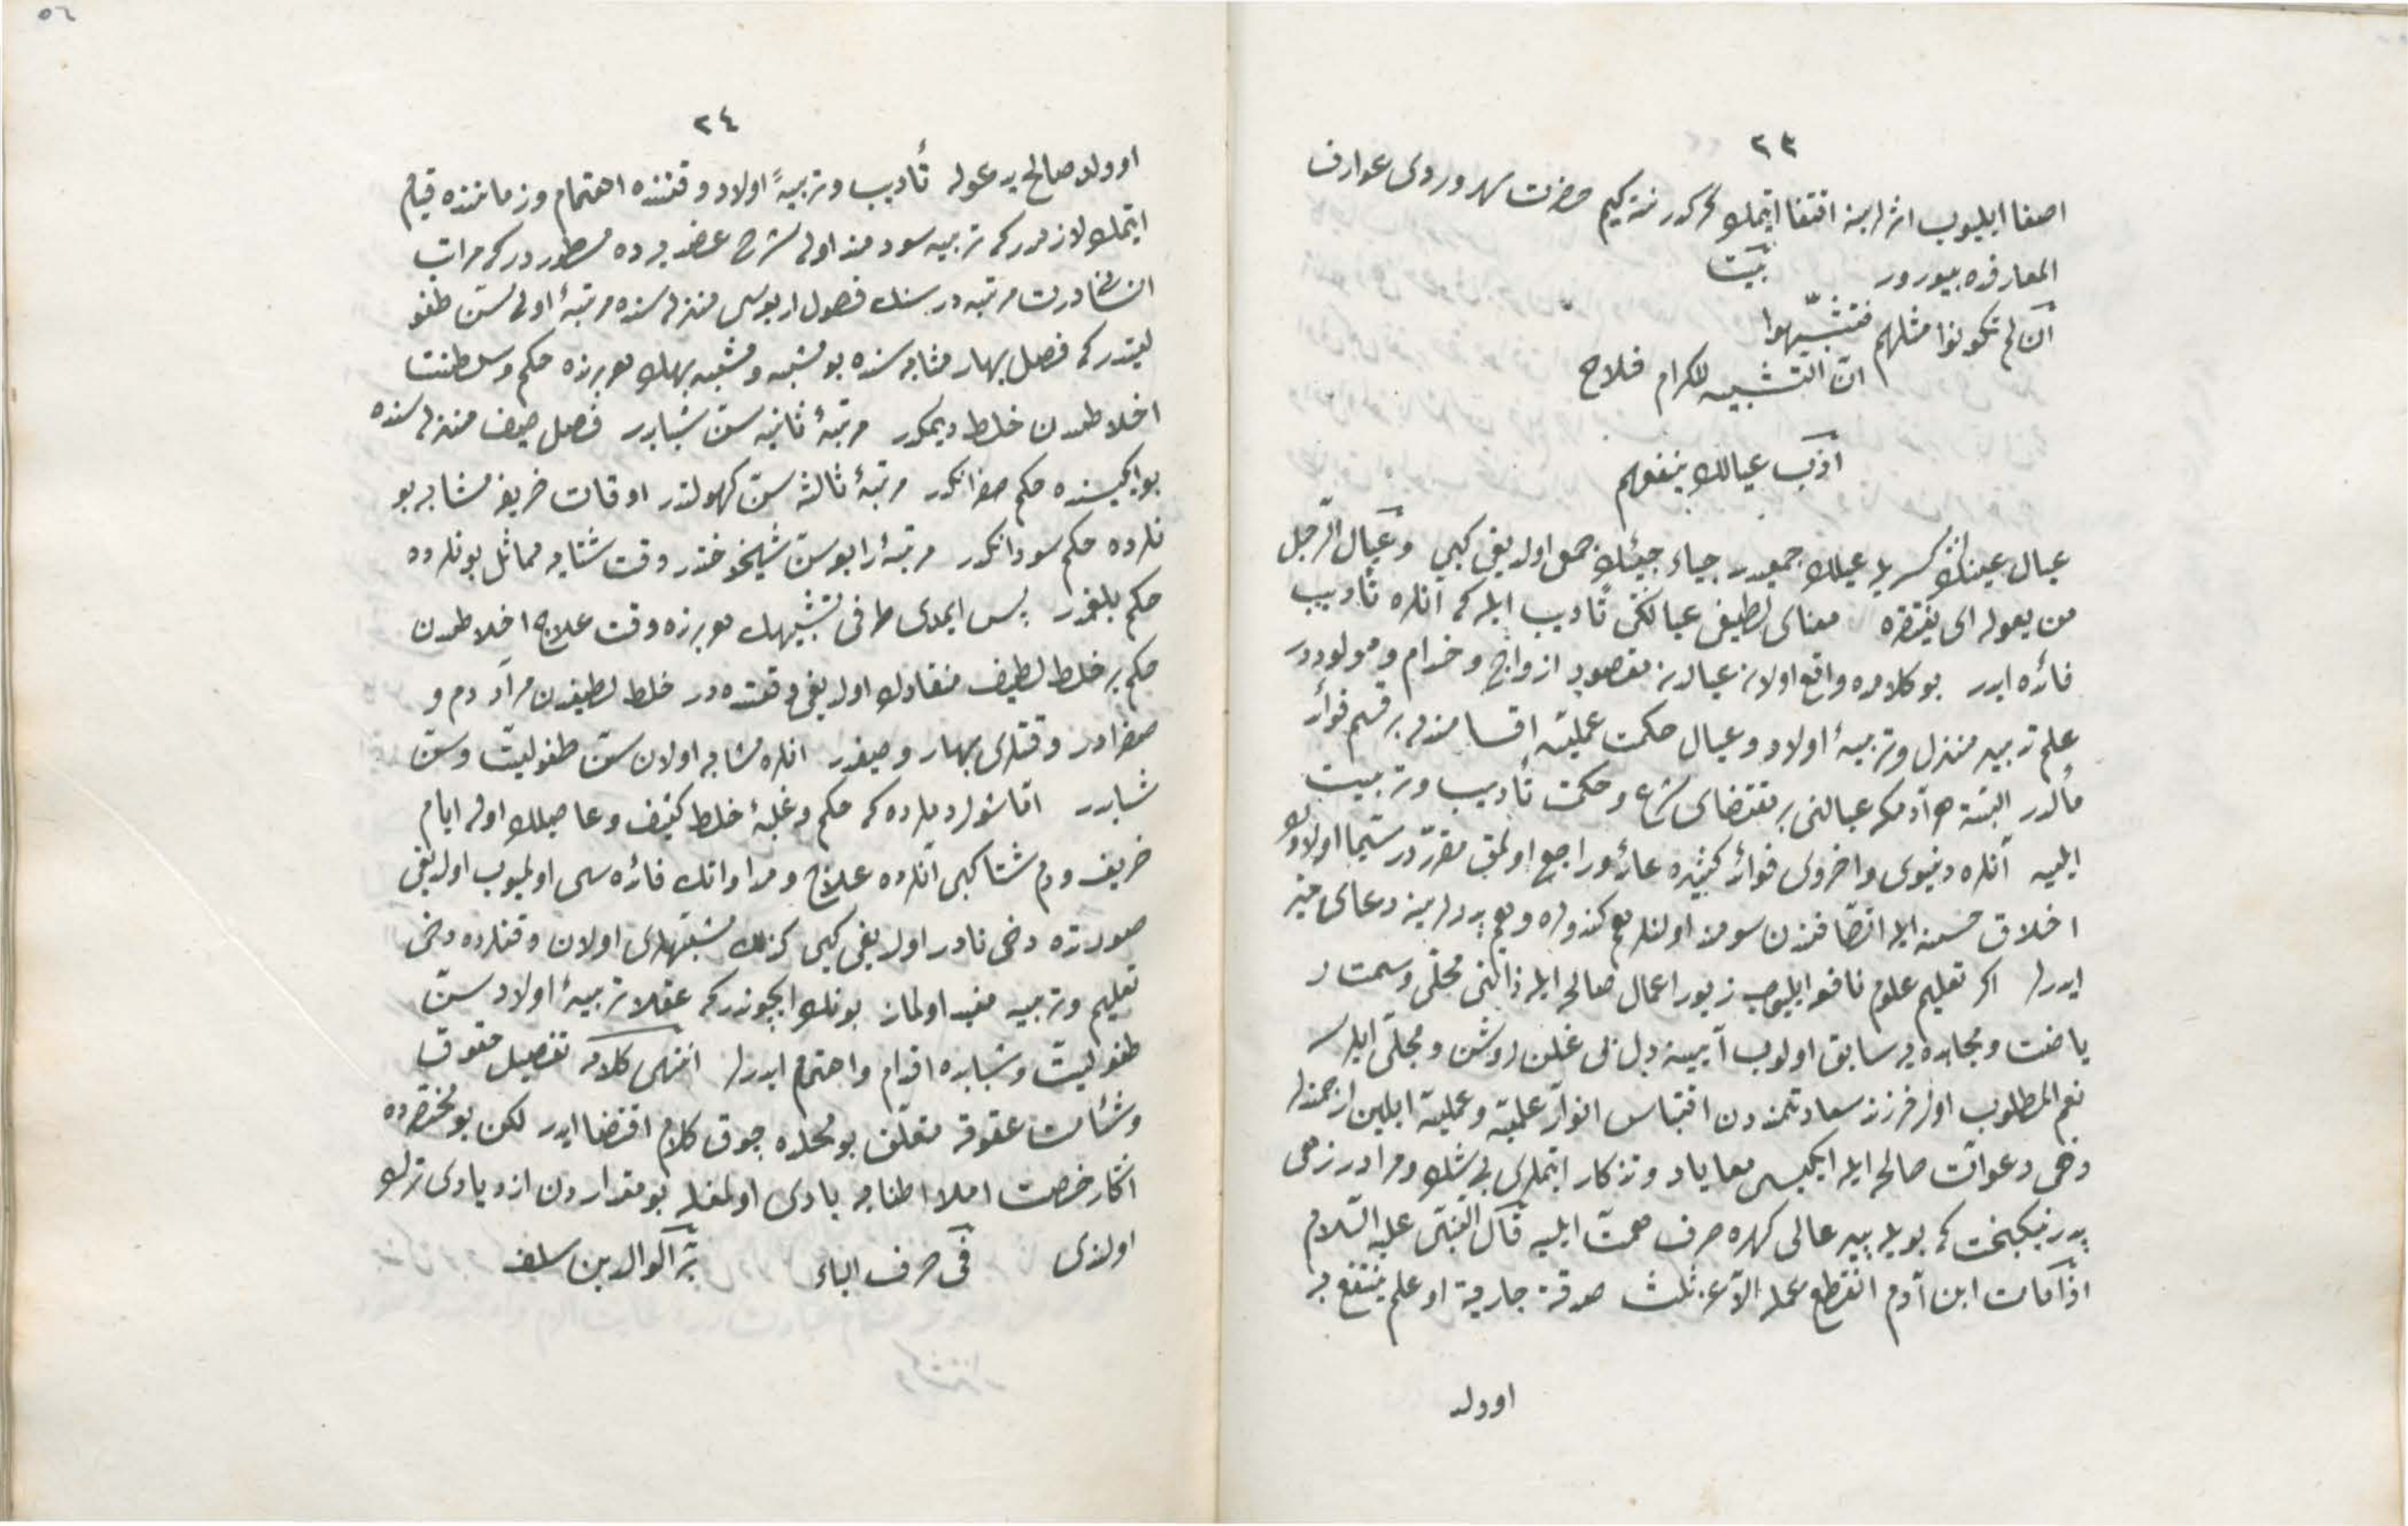 ٢٣
اصغا ايليوب اثرلرينه اقتفا ايتمك كركدر نته كيم حضرت سهروردى عوارف
المعارفده بيورر بيت
ان لم تكونوا مثلهم فتشبّهوا
انّ التشبيه للكرام فلاح
ادّب عيالك ينفعهم
عيال عينك كسريله عيلك جمعيدر جياد جيّدك جمعى اولديغى كبى وعيال الرجل
من يعوله اى ينفقه معناى لطيفى عيالكى تأديب ايله كه انلره تأديب
فائده ايدر بو كلامده واقع اولان عيالدن مقصود ازواج وخدام ومولوددر
علم تدبير منزل وتربيهٔ اولاد وعيال حكمت عمليه اقسامندن بر قسم فوائد
مآلدر البته هر آدم كه عيالنى بر مقتضاى شرع وحكمت تأديب وتربيت
ايليه آنلره دنيوى واخروى فوائد كثيره عائد وراجع اولمق مقرردر سيّما اولادك
اخلاق حسنه ايله اتّصافندن سودمند اولنلر هم كندولره وهم پدرلرينه دعاى خير
ايدرلر اكر تعليم علوم نافع ايليوب زيور اعمال صالحه ايله ذاتنى محلّى وسمت ر
ياضت ومجاهده يه سابق اولوب آيينه دل بى غلن روشن ومجلّى ايلرسه
نعم المطلوب اول فرزند سعادتمندون اقتباس انوار علميّه وعمليّه ايلين ارجمندلر
دخى دعوات صالحه ايله ايكيسى معا ياد وتذكار ايتملرى بى شك ومرادر زهى
پدر نيكبخت كه بويله پسر عالى كهره صرف همّت ايليه قال النبىّ عليه السّلام
اذا مات ابن آدم انقطع عمله الّا عن ثلث صدقة جارية او علم ينتفع به
اوولد
٢٤
اوولد صالح يدعوله تأديب وتربيهٔ اولاد وقتنده اهتمام وزماننده قيام
ايتمك لازمدر كه تربيه سودمند اوله شرح عضديده مسطوردر كه مراتب
انسان درت مرتبه در سنك فصول اربعه سى منزلسنده مرتبهٔ اولى سنّ طفو
ليتدر كه فصل بهار مثابه سنده بو مشبه ومشبه بهك هربرنده حكم وسلطنت
اخلاطدن خلط ديمكدر مرتبهٔ ثانيه سنّ شبابدر فصل صيف منزلسنده
بو ايكيسنده حكم صفرانكدر مرتبهٔ ثالثه سنّ كهولتدر اوقات خريفه مشابه بو
نلرده حكم سودانكدر مرتبهٔ رابعه سنّ شيخوختدر وقت شتايه مماثل بونلرده
حكم بلغمدر پس ايمدى طرفى تشبيهك هربرنده وقت علاج اخلاطدن
حكم بر خلط لطيف منقادك اولديغى وقتده در خلط لطيفدن مراد دم و
صفرادر وقتلرى بهار وصيفدر انلره مشابه اولان سنّ طفوليّت وسنّ
شبابدر امّا شول دملرده كه حكم وغلبهٔ خلط كثيف وعاصينك اوله ايام
خريف ودم شتا كبى آنلرده علاج ومداواتك فائده سى اولميوب اولديغى
صورتده دخى نادر اولديغى كبى كذلك مشبهلرى اولان وقتلرده دخى
تعليم وتربيه مفيد اولماز بونك ايچوندر كه عقلا تربيهٔ اولاد سنّ
طفوليّت وشبابده اقدام واهتمام ايدرلر انتهى كلامه تفصيل حقوق
وشئامت عقوقه متعلّق بومحلده چوق كلام اقتضا ايدر لكن بو مختصرده
اكثار خصت املا اطنابه بادى اولمغله بو مقداردن ازديادى ترك
اولندى فى حرف الباء برّ الوالدين سلف